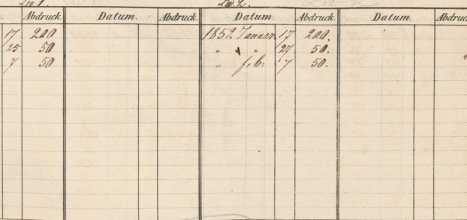 Abdruck. Datum. Abdruck. Datum. Abdruck. Datum. Abdruck
17 200 1852 Januar 17 200.
25 50 " " 27 50.
7 50 " feb. 7 50.